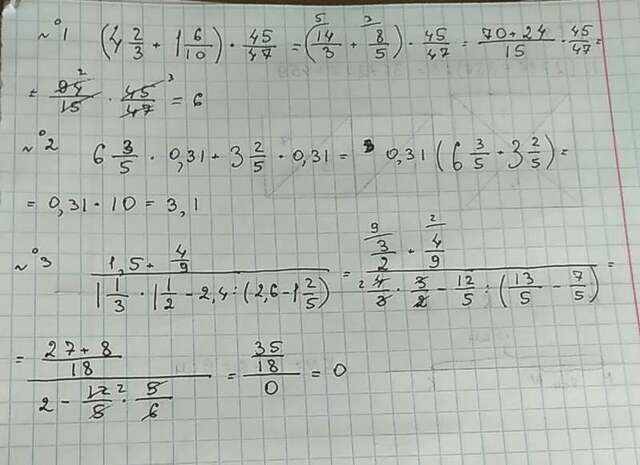 №1 (4 2/3 + 1 6/10) · 45/47 = (14/3 + 8/5) · 45/47 = 70+24/15 · 45/47 =
5 3
= 94/15 · 45/47 = 6
2 3
№2 6 3/5 · 0,31 + 3 2/5 · 0,31 = 0,31 (6 3/5 + 3 2/5) =
= 0,31 · 10 = 3,1
№3 1,5 + 4/9 / 1 1/3 · 1 1/2 - 2,4 : (2,6 - 1 2/5) = 3/2 + 4/9 / 4/3 · 3/2 - 12/5 : (13/5 - 7/5) =
9 2
2
= 27+8/18 / 2 - 12/5 · 5/6 = 35/18 / 0 = 0
2